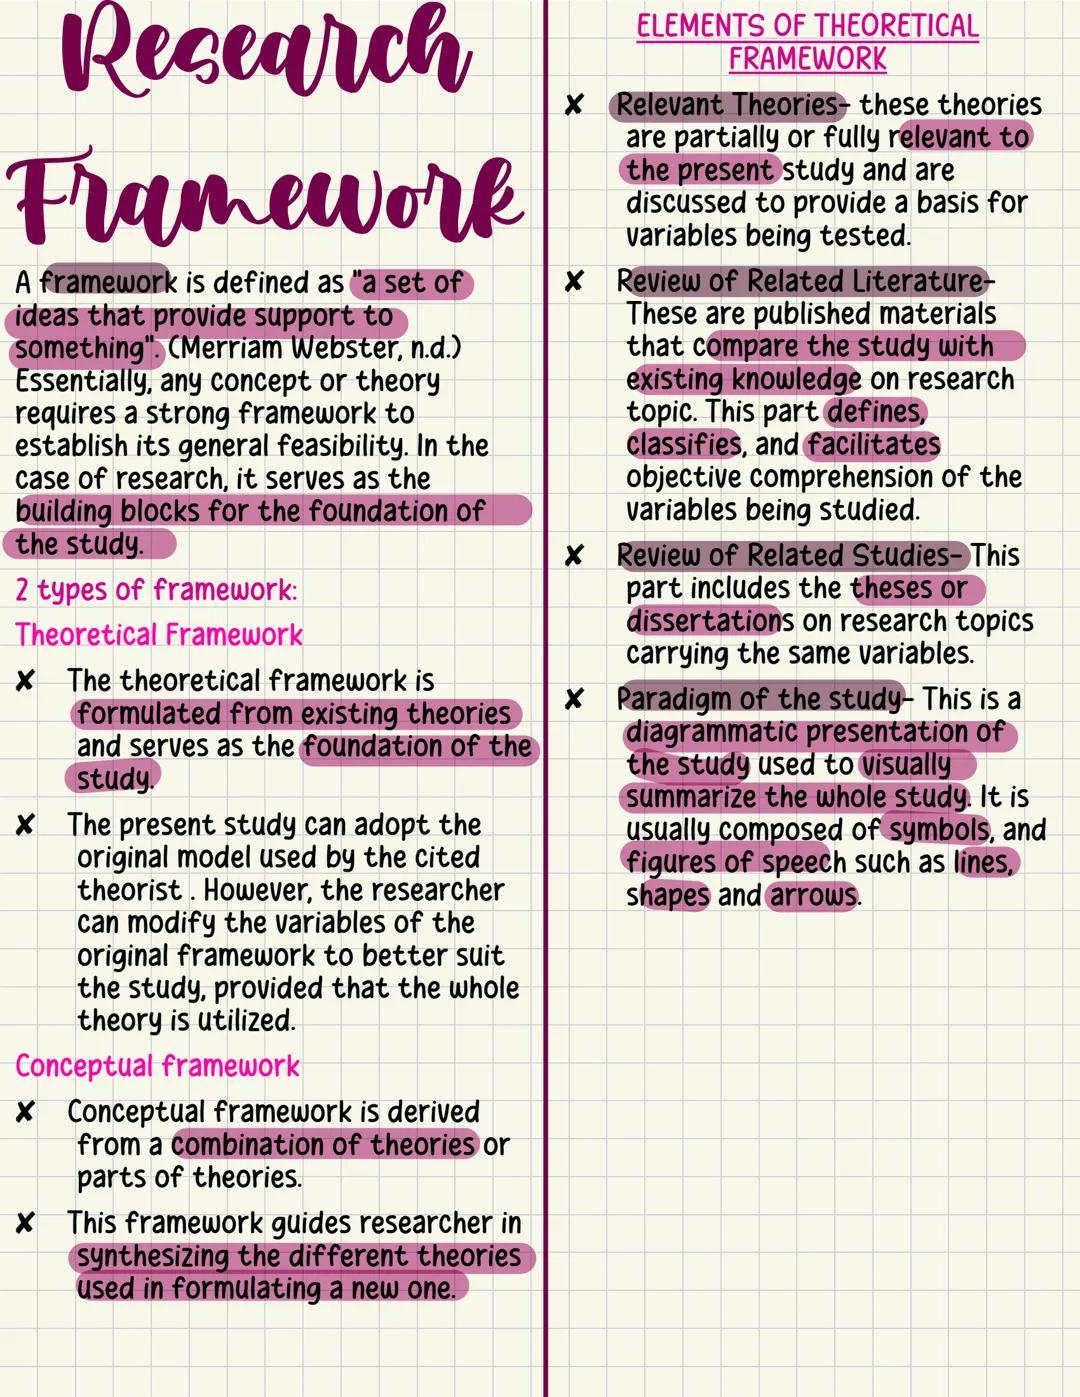 Research
Framework
A framework is defined as "a set of
ideas that provide support to
something". (Merriam Webster, n.d.)
Essentially, any concept or theory
requires a strong framework to
establish its general feasibility. In the
case of research, it serves as the
building blocks for the foundation of
the study.
2 types of framework:
Theoretical Framework
✘ The theoretical framework is
formulated from existing theories
and serves as the foundation of the
study.
✘ The present study can adopt the
original model used by the cited
theorist . However, the researcher
can modify the variables of the
original framework to better suit
the study, provided that the whole
theory is utilized.
Conceptual framework
✘ Conceptual framework is derived
from a combination of theories or
parts of theories.
✘ This framework guides researcher in
synthesizing the different theories
used in formulating a new one.
ELEMENTS OF THEORETICAL
FRAMEWORK
✘ Relevant Theories- these theories
are partially or fully relevant to
the present study and are
discussed to provide a basis for
variables being tested.
✘ Review of Related Literature-
These are published materials
that compare the study with
existing knowledge on research
topic. This part defines,
classifies, and facilitates
objective comprehension of the
variables being studied.
✘ Review of Related Studies- This
part includes the theses or
dissertations on research topics
carrying the same variables.
✘ Paradigm of the study- This is a
diagrammatic presentation of
the study used to visually
summarize the whole study. It is
usually composed of symbols, and
figures of speech such as lines,
shapes and arrows.